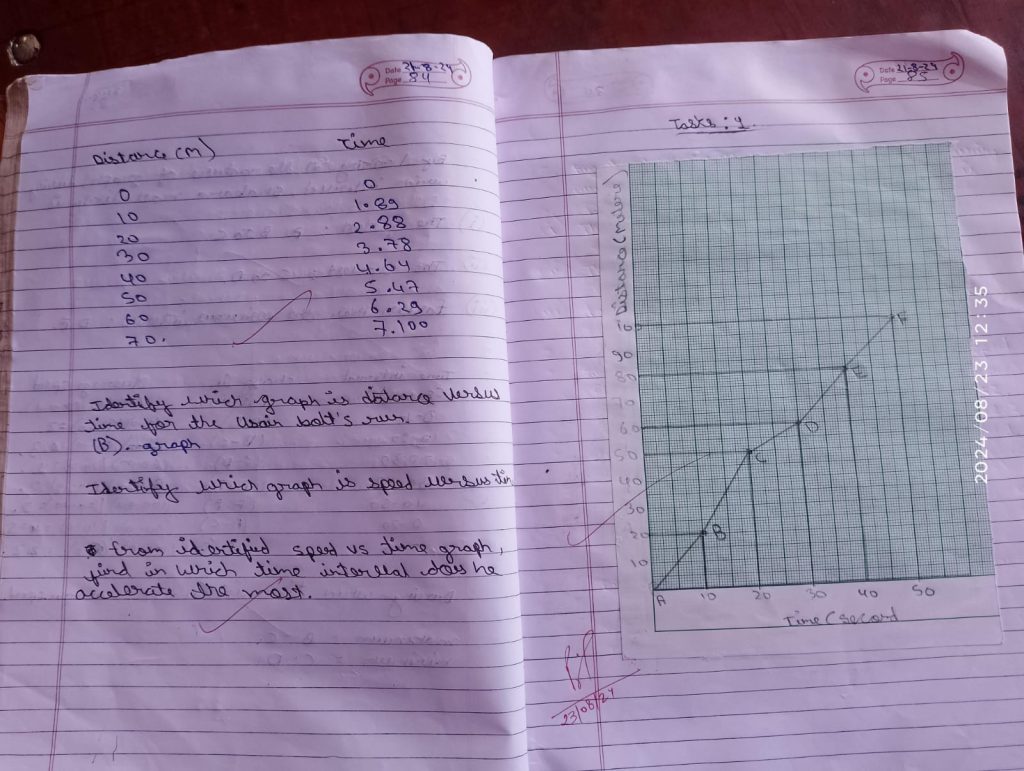 Date 21-8-24
Page 84
Distance (M) Time
0 0
10 1.89
20 2.88
30 3.78
40 4.64
50 5.47
60 6.29
70. 7.100
Identify which graph is distance versus
time for the Usain bolt's run.
(B). graph
Identify which graph is speed versus tim
from identified speed vs time graph,
find in which time interval does he
accelerate the most.
Date 21-8-24
Page 85
Tasks: 4
Distance (Metere)
90
80
70
60
50
40
30
20
10
A B C D E F
10 20 30 40 50
Time (second
23/08/24
2024/08/23 12:35